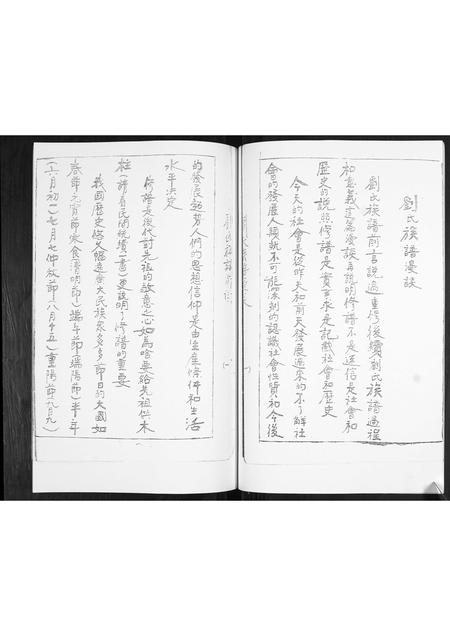 劉氏族譜漫談
劉氏族譜前言說過重修後續劉氏族譜過程
和意義這篇漫談再說明修譜不是迷信是社會和
歷史的說照修譜是實事求是記載社會和歷史
今天的社會是從昨天和前天發展過來的不了解社
會的發展人類就不可能深刻的認識社會性質和今後
的發展趨勢人們的思想信仰是由生產條件和生活
水平決定
修譜是後代討先祖的故意之心如為啥要給先祖供木
柱(請看民間統續一書)更說明了修譜的重要
我國歷史悠久幅遼大民族眾多節日的大國如
春節元宵節寒食清明節)端午節(端陽節)半年
(六月初一)七月七仲秋節(八月十五)重陽節九月九)